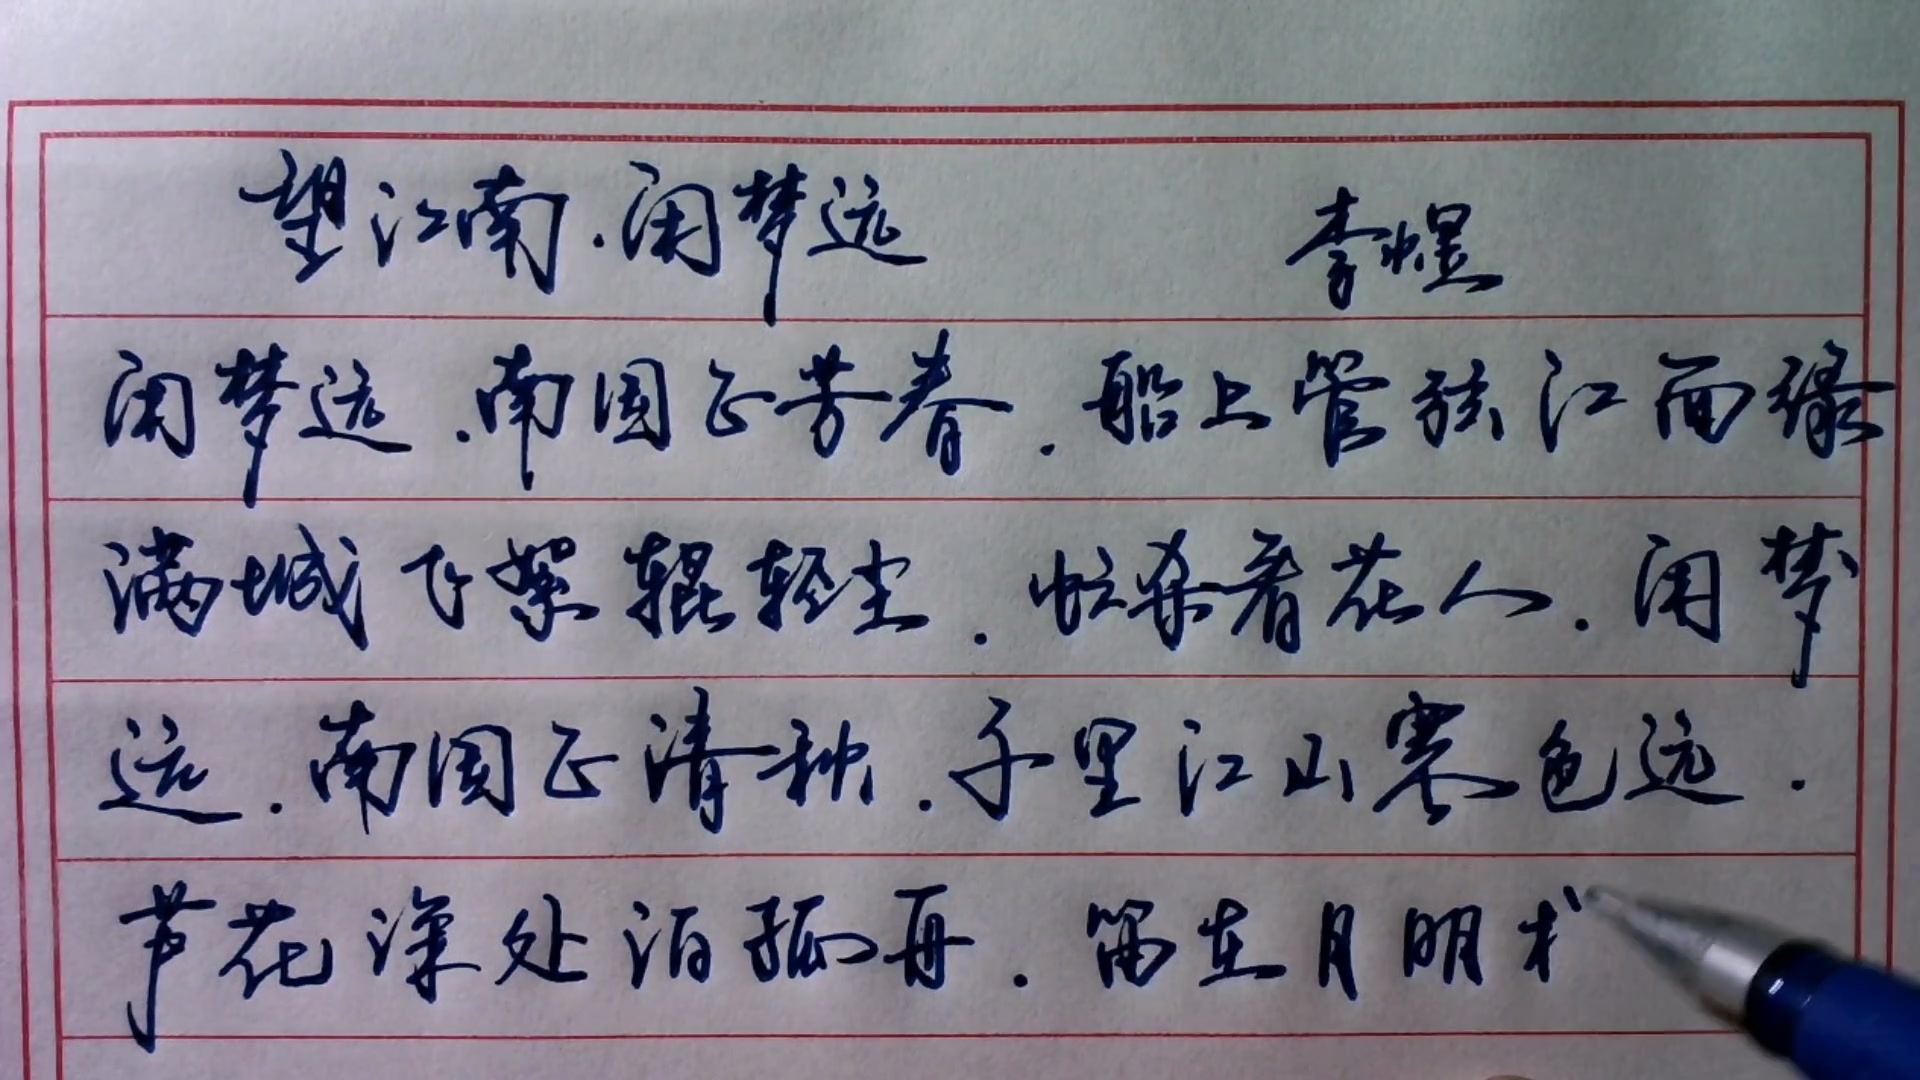 望江南.闲梦远 李煜
闲梦远.南国正芳春.船上管弦江面绿
满城飞絮辊轻尘.忙杀看花人.闲梦
远.南国正清秋.千里江山寒色远.
芦花深处泊孤舟.笛在月明